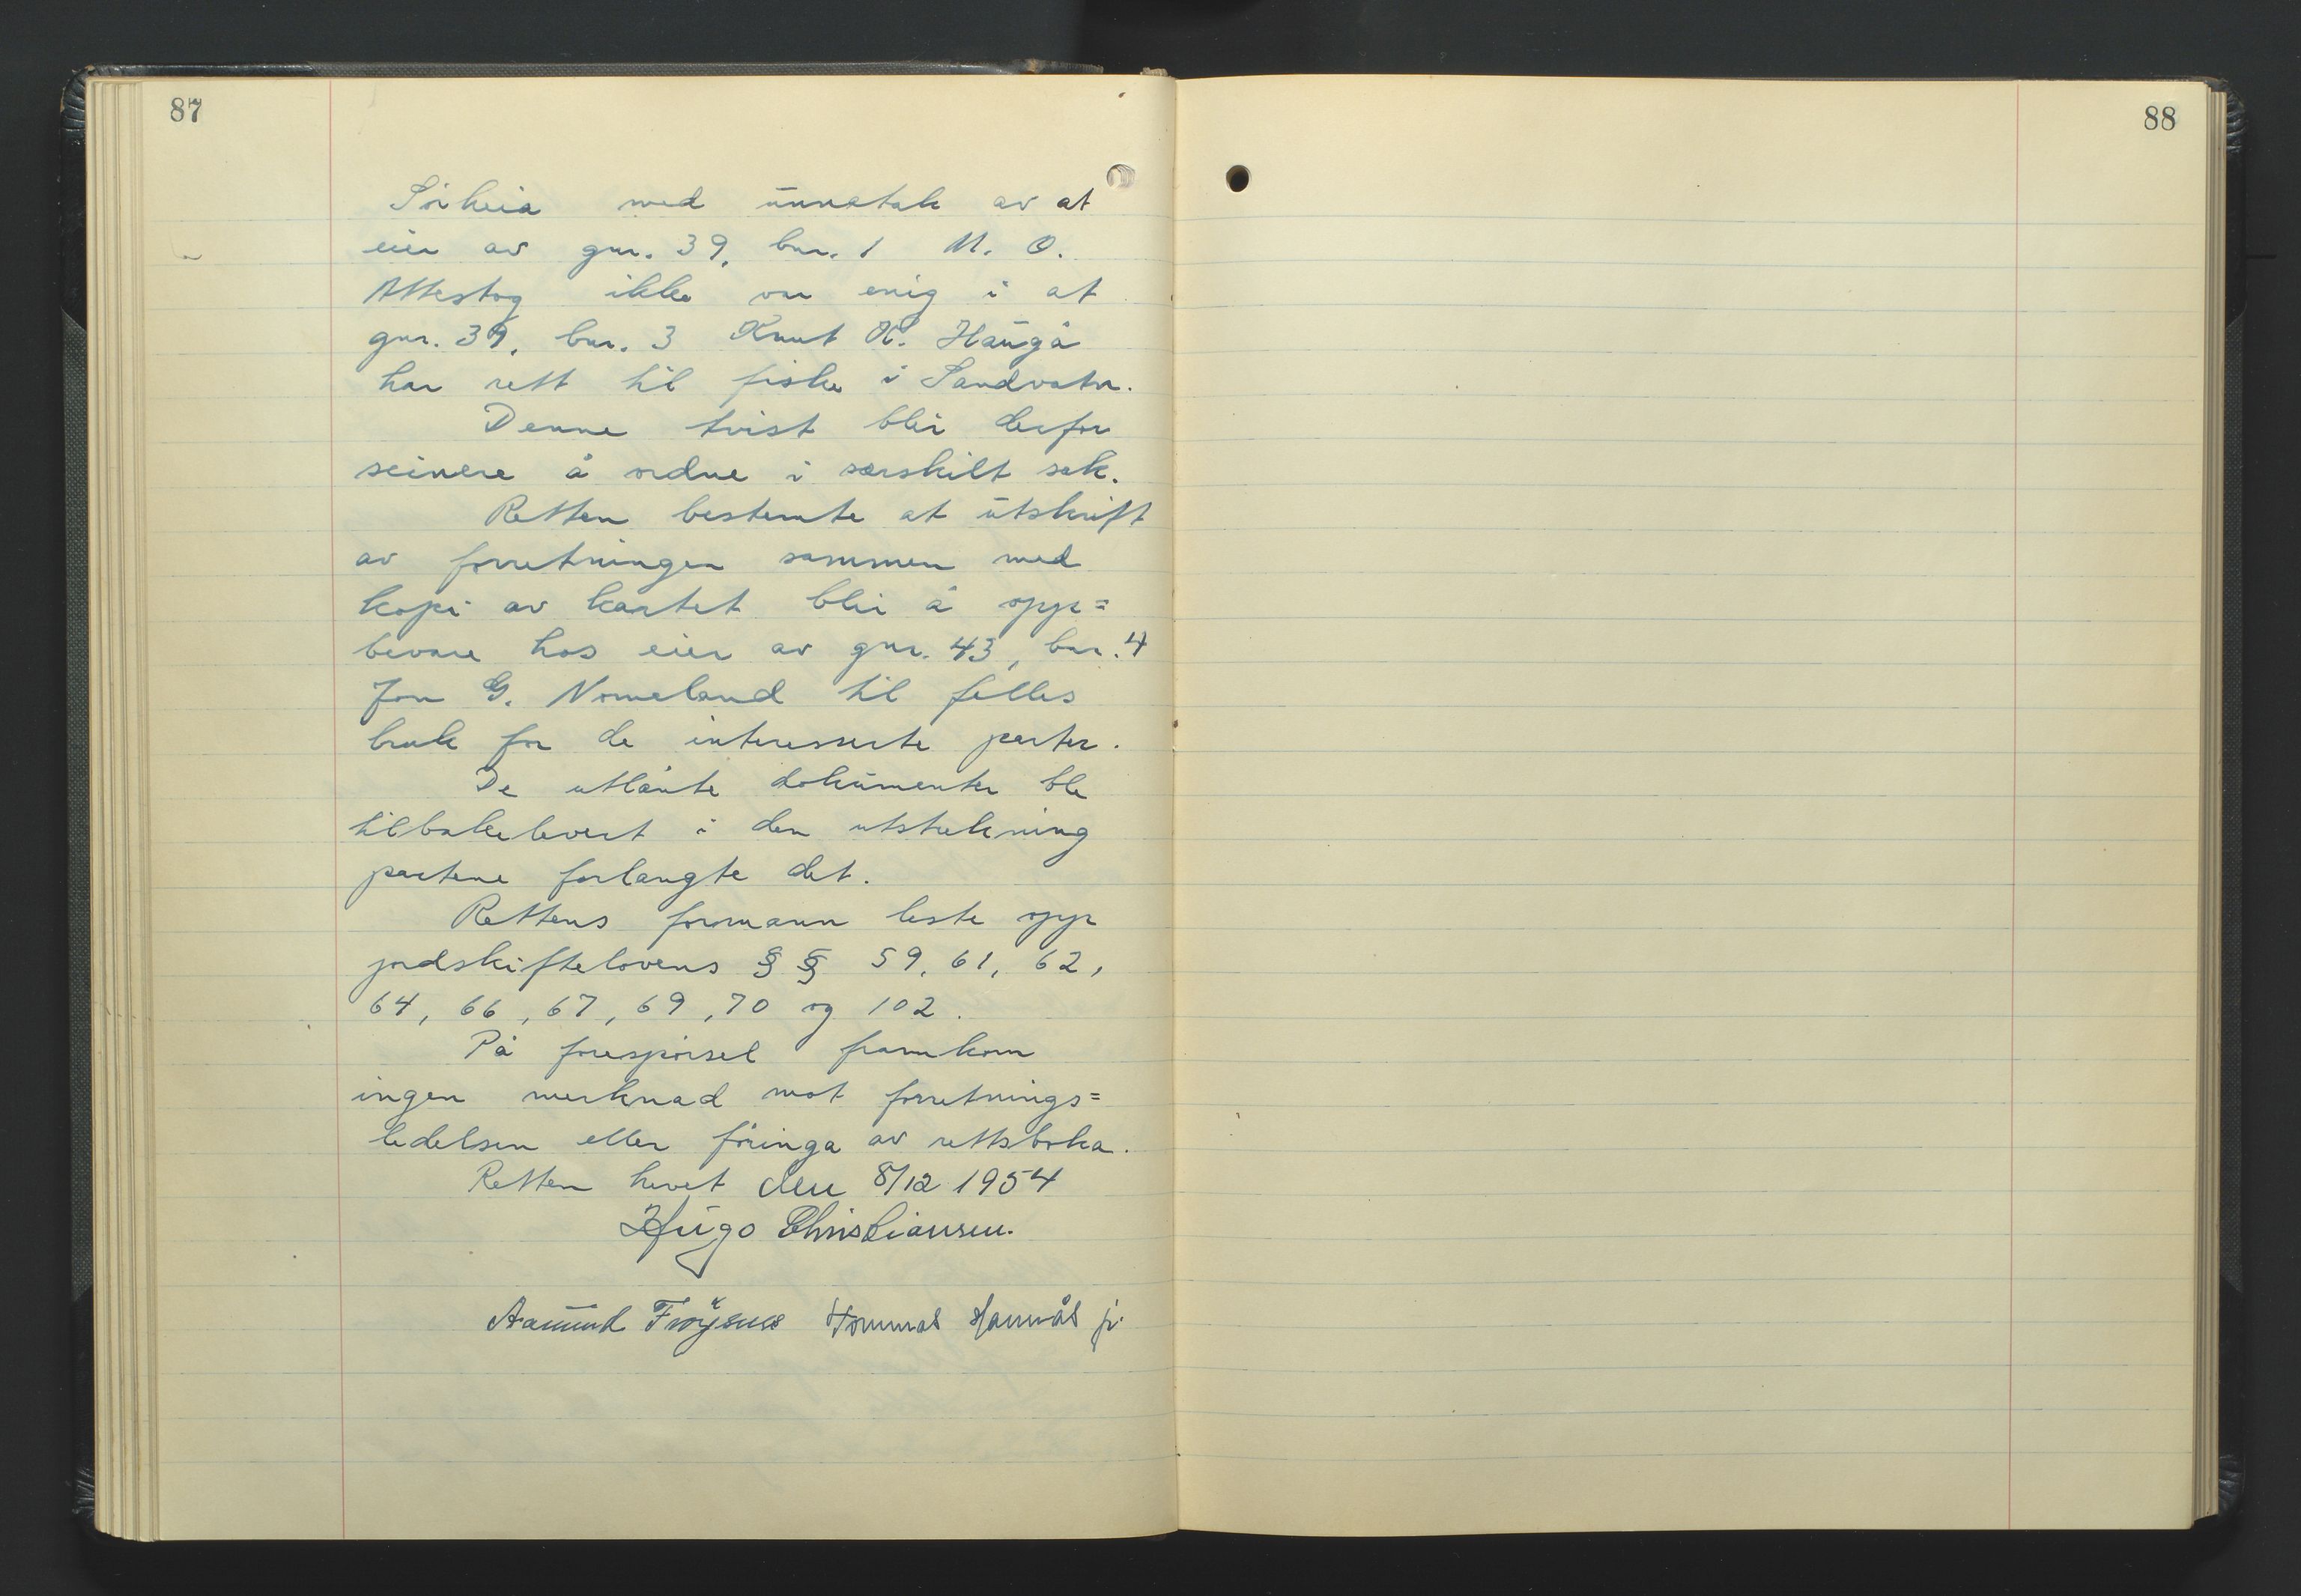 87
88
Sörheia med unnatak av at
eier av gnr. 39, bnr. 1 M. O.
Attestog ikke var enig i at
gnr. 39, bnr. 3 Knut K. Haugå
har rett til fiske i Sandvatn.
Denne tvist blir derfor
seinere å ordne i særskilt sak.
Retten bestemte at utskrift
av forretningen sammen med
kopi av kartet blir å opp=
bevare hos eier av gnr. 43, bnr. 4
Jon G. Nomeland til felles
bruk for de interesserte parter.
De utlånte dokumenter ble
tilbakelevert i den utstrekning
partene forlangte det.
Rettens formann leste opp
jordskiftelovens § § 59, 61, 62,
64, 66, 67, 69, 70 og 102.
På forespörsel framkom
ingen merknad mot forretnings=
ledelsen eller föringa av rettsboka.
Retten hevet den 8/12 1954
Hugo Christiansen.
Aamund Tommas jr.